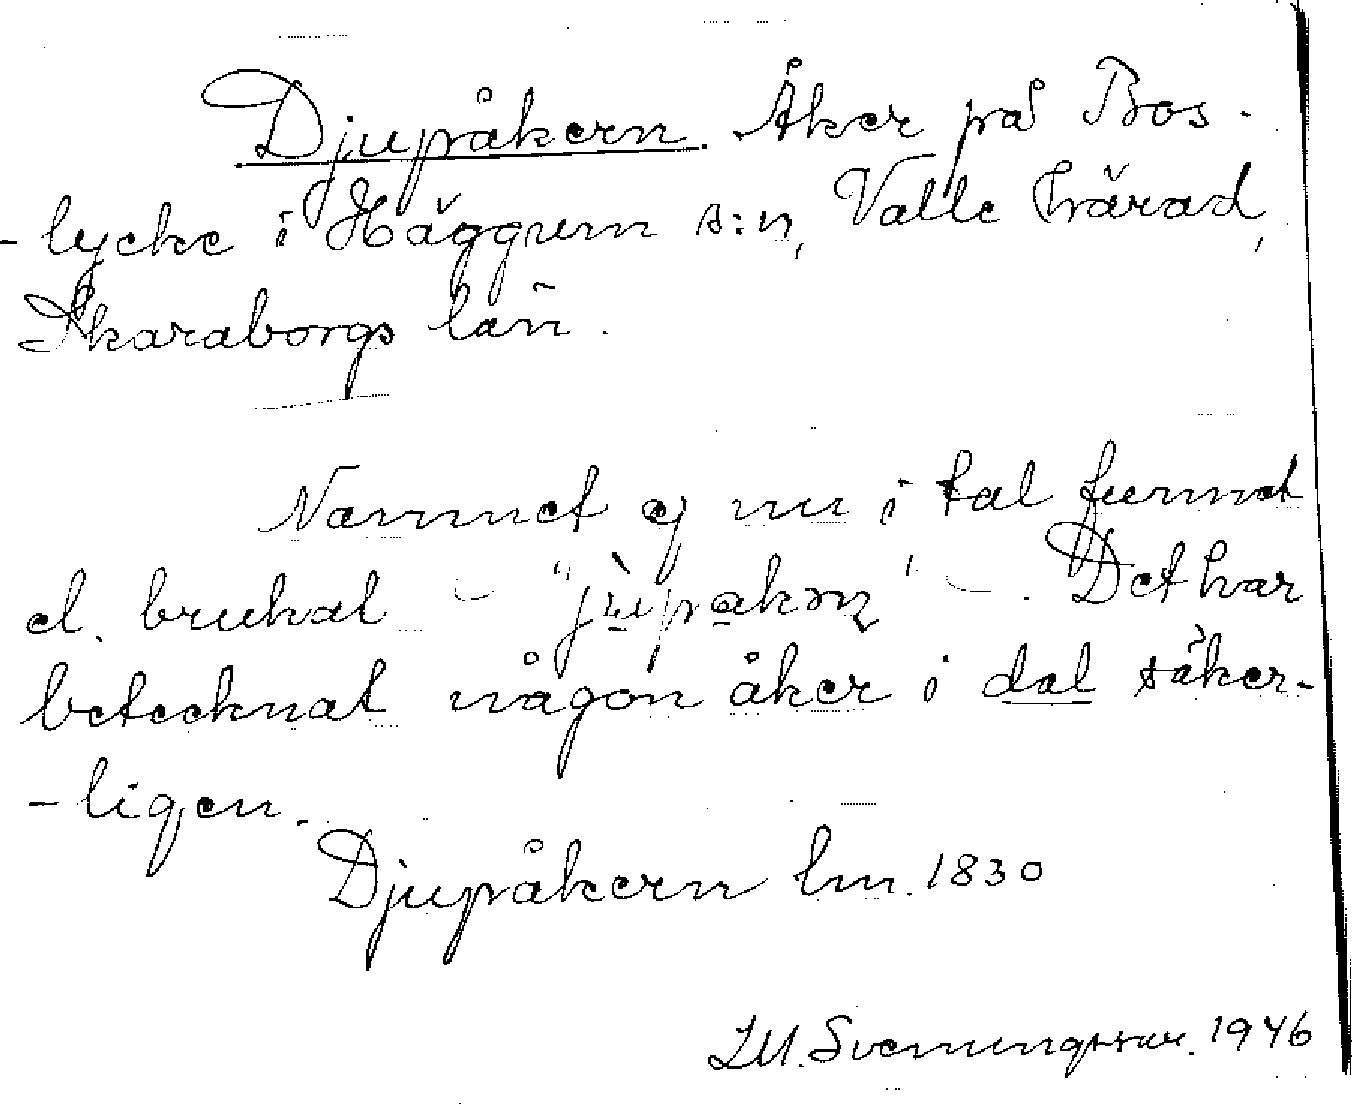 Djupåkern. Åker på Bos-
-lycke i Häggum s:n, Valle härad,
Skaraborgs län.
Namnet ej nu i tal funnet
el. brukat – "jùpakɷn" –. Det har
betecknat någon åker i dal säker-
-ligen.
Djupåkern lm. 1830
Svenungsson. 1946